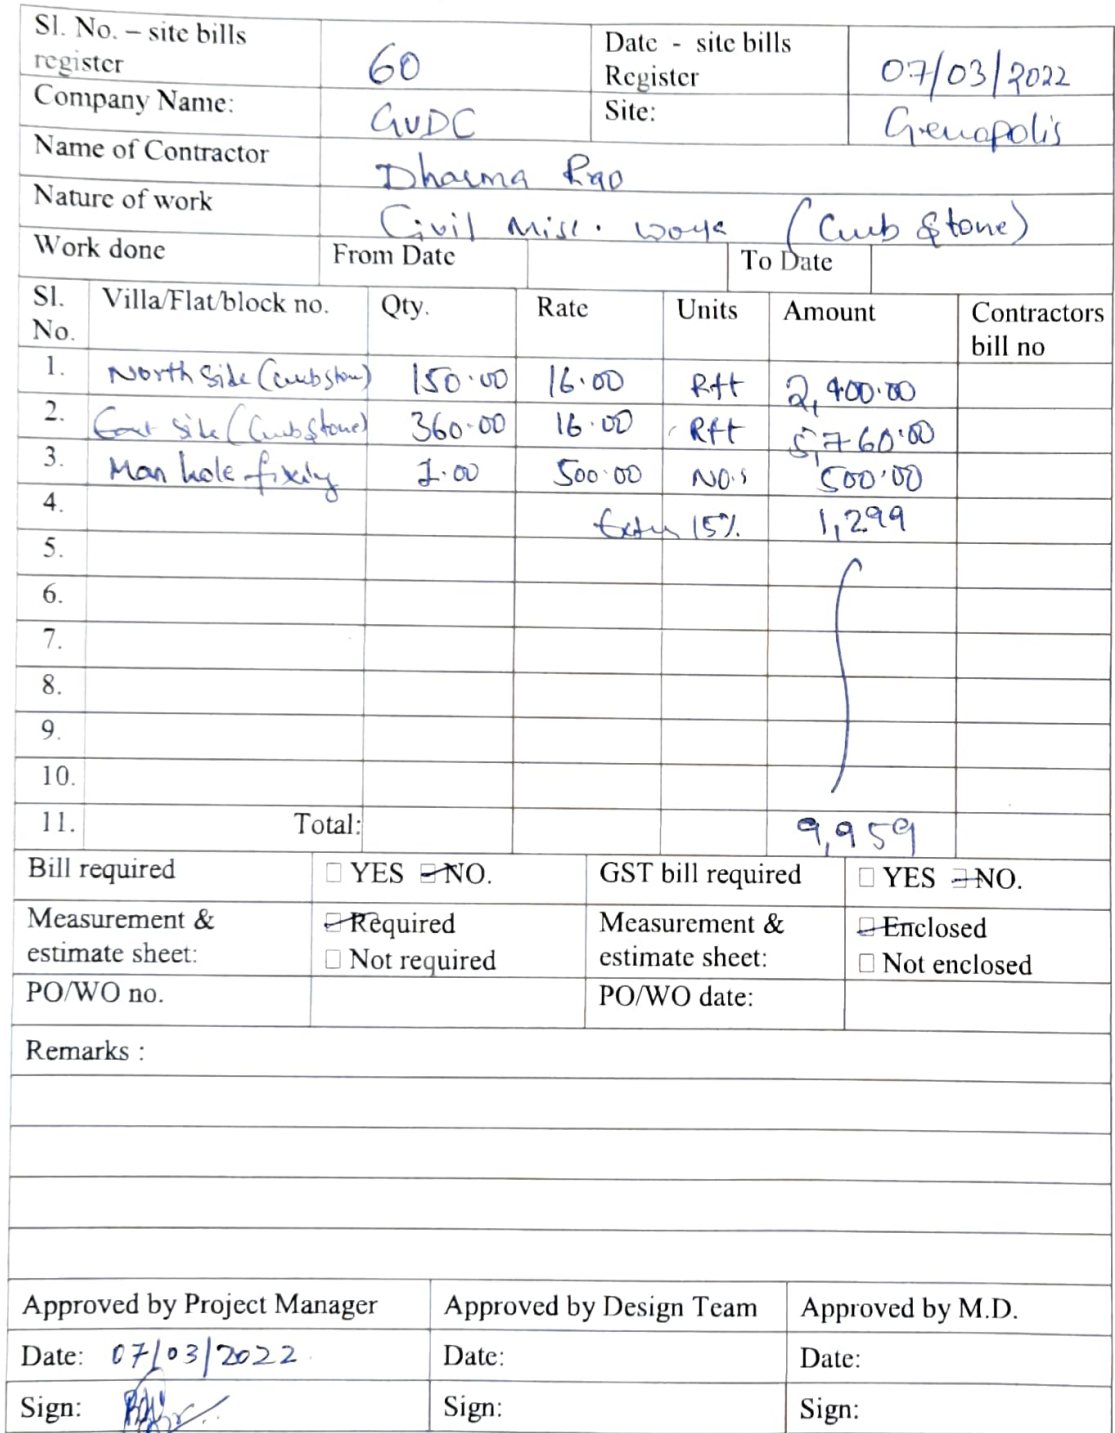 Sl. No. – site bills register 60 Date - site bills Register 07/03/2022
Company Name: GVDC Site: Genapolis
Name of Contractor Dharma Rao
Nature of work Civil Misc. works (Curb Stone)
Work done From Date To Date
Sl. No. Villa/Flat/block no. Qty. Rate Units Amount Contractors bill no
1. North Side (Curbstone) 150.00 16.00 Rft 2,400.00
2. East Side (Curb Stone) 360.00 16.00 Rft 5,760.00
3. Man hole fixing 1.00 500.00 NO.s 500.00
4. 15% 1,299
5.
6.
7.
8.
9.
10.
11. Total: 9,959
Bill required YES NO. GST bill required YES NO.
Measurement & estimate sheet: Required Measurement & estimate sheet: Enclosed
Not required Not enclosed
PO/WO no. PO/WO date:
Remarks :
Approved by Project Manager Approved by Design Team Approved by M.D.
Date: 07/03/2022 Date: Date:
Sign: Sign: Sign: